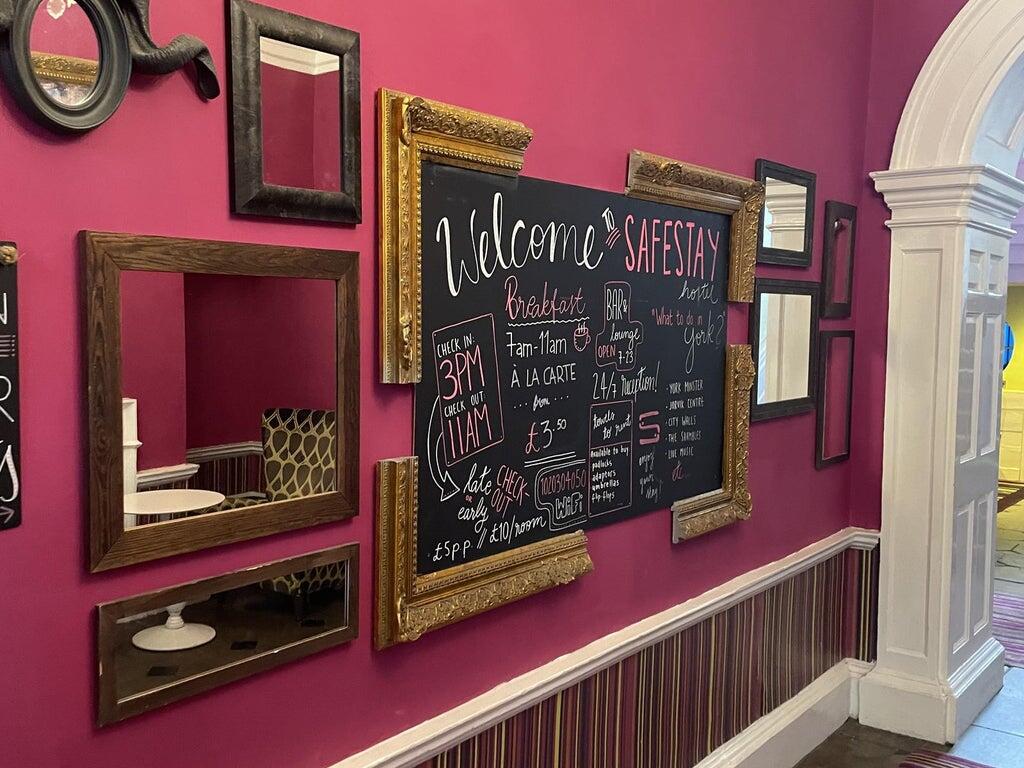 Welcome TO SAFESTAY
hostel
CHECK IN:
3PM
CHECK OUT:
11AM
late
or
early
CHECK-
OUT
£5 p.p. // £10/room
Breakfast
7am-11am
À LA CARTE
.... from ....
£3.50
1020304050
WiFi
BAR &
lounge
OPEN
7-23
24/7 reception!
towels
to rent
Available to buy
padlocks
adaptors
umbrellas
flip-flops
S
enjoy
your
stay!
"What to do in
York?"
- YORK MINSTER
- JORVIK CENTRE
- CITY WALLS
- THE SHAMBLES
- LIVE MUSIC
N
R